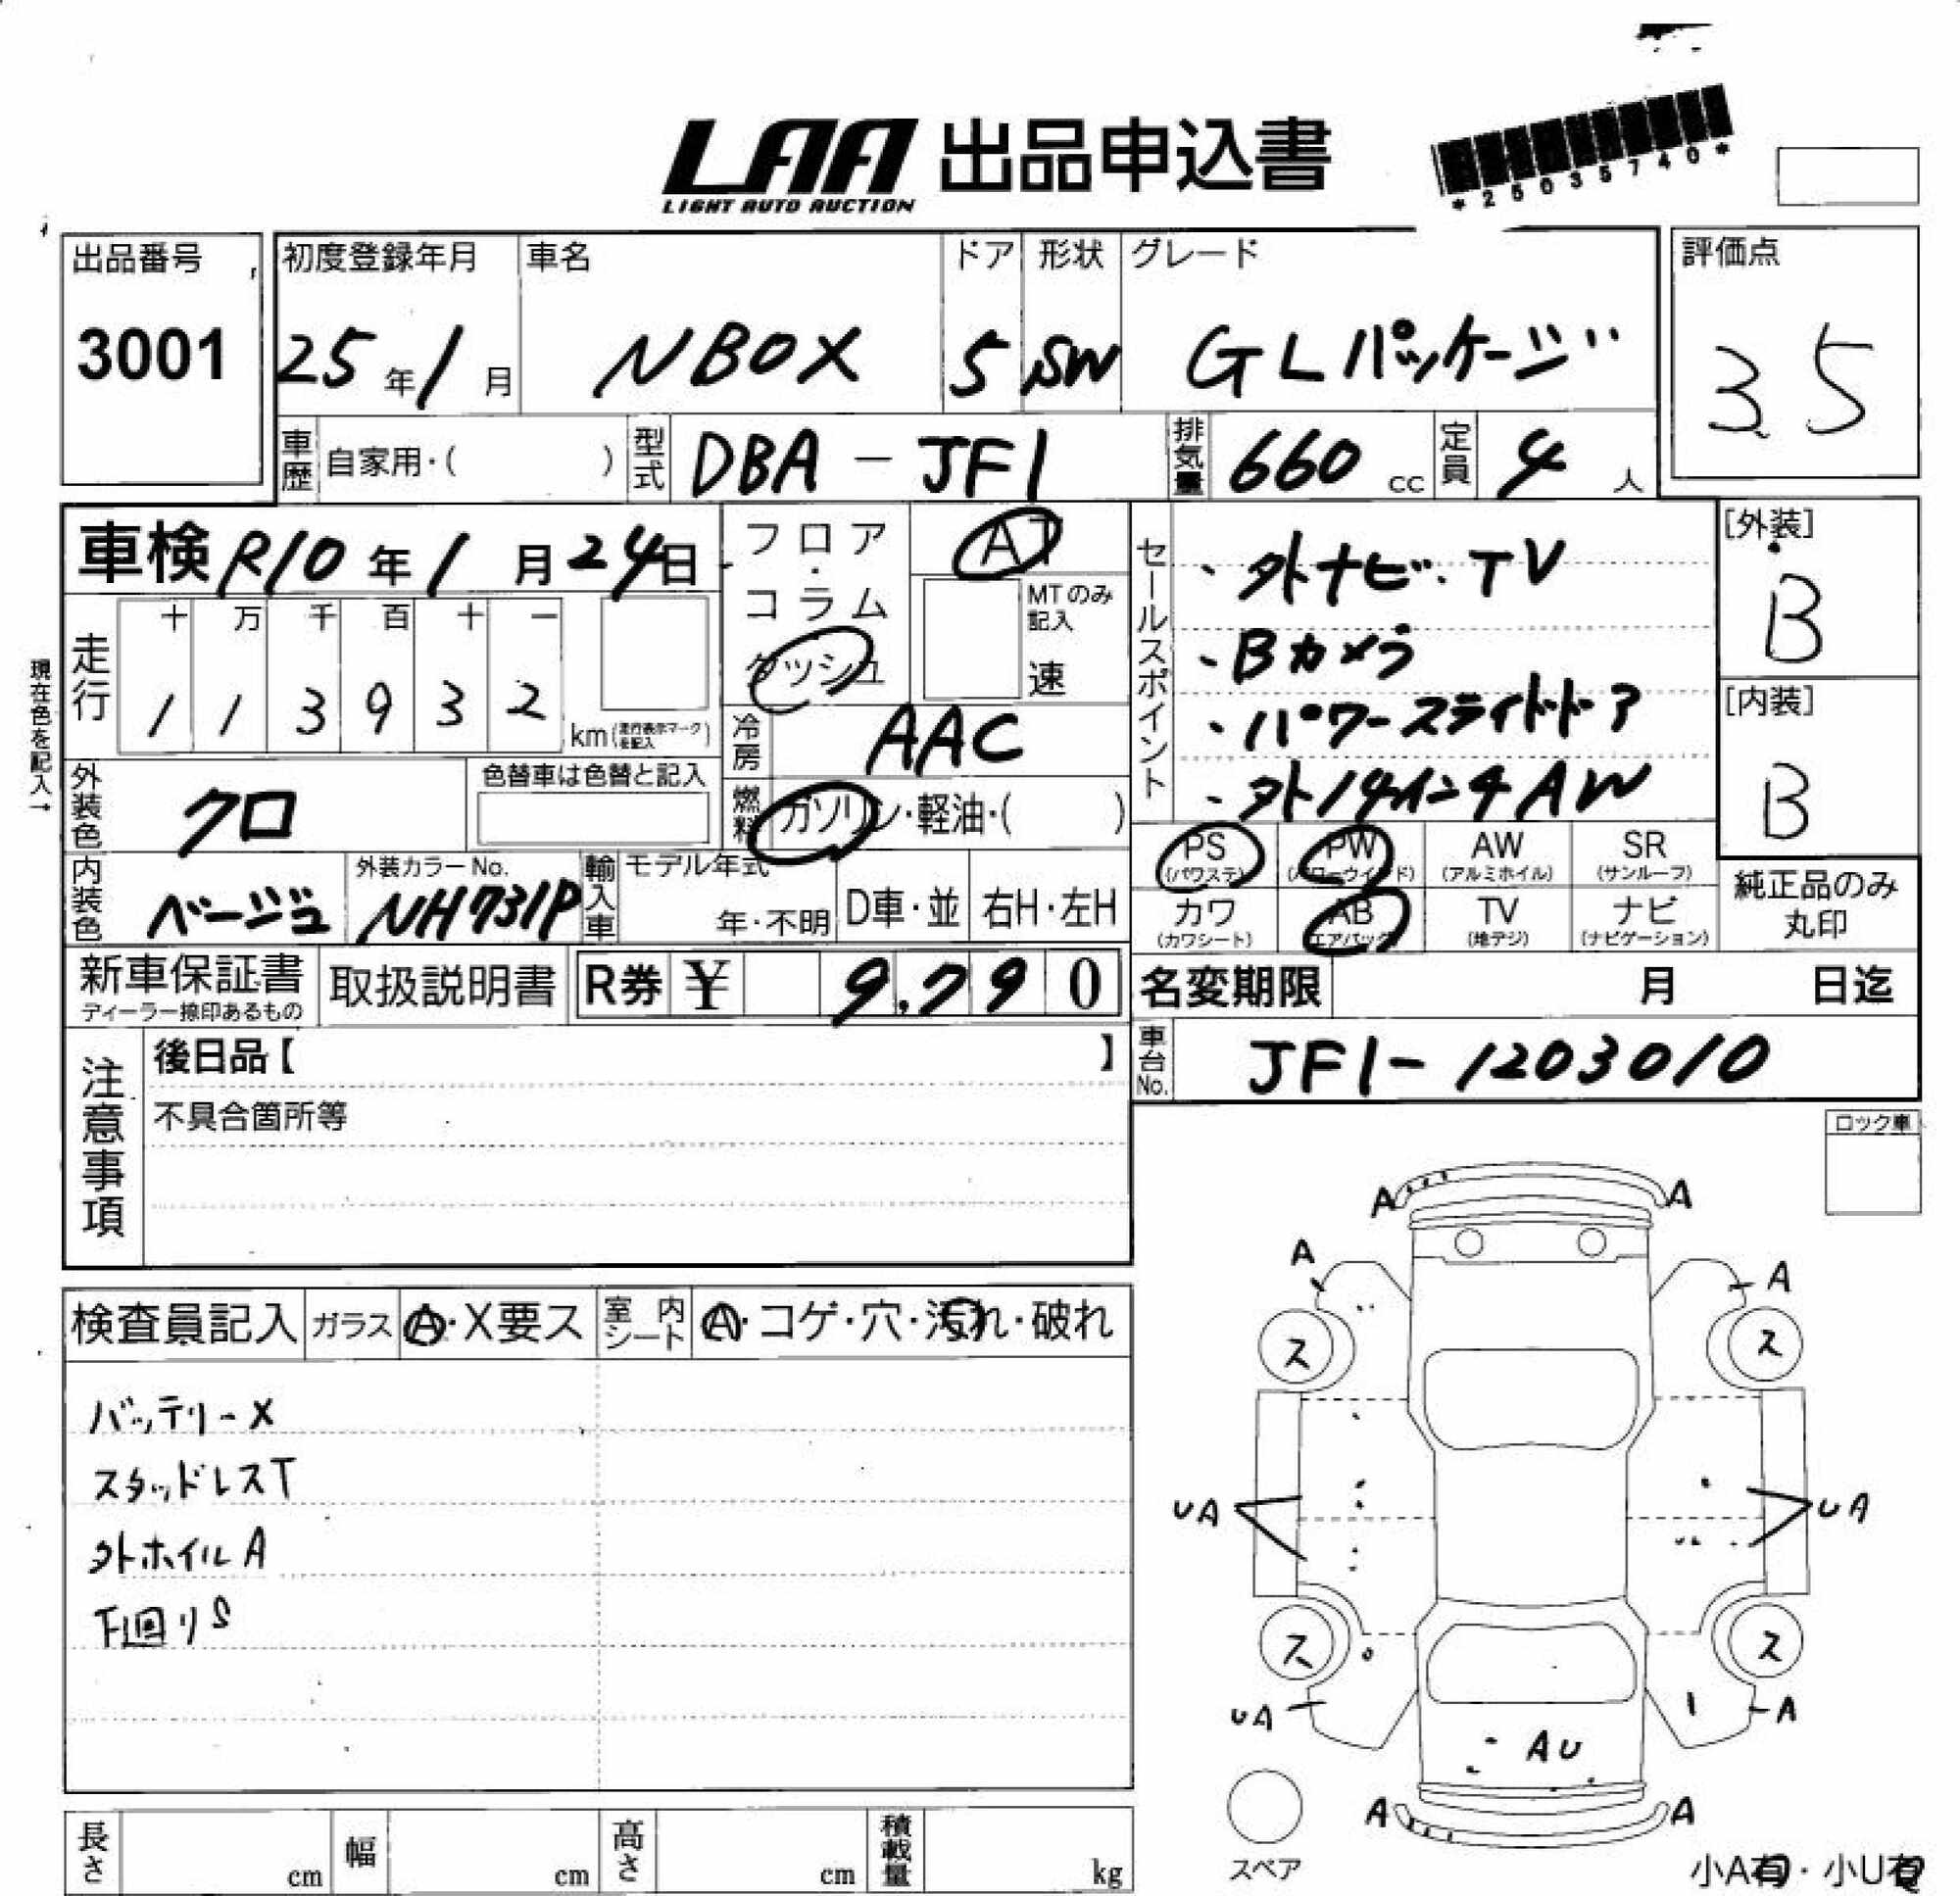 LAA 出品申込書
LIGHT AUTO AUCTION
*25035740*
出品番号
3001
初度登録年月
25年1月
車名
NBOX
ドア
5
形状
SW
グレード
GLパッケージ
評価点
3.5
車歴
自家用・( )
型式
DBA-JF1
排気量
660 cc
定員
4 人
車検 R10年1月24日
フロア・コラム
ダッシュ
AT
MTのみ記入
速
現在色を記入→
走行
十 万 千 百 十 一
1 1 3 9 3 2
km(走行表示マークを記入)
冷房
AAC
外装色
クロ
色替車は色替と記入
燃料
ガソリン・軽油・( )
内装色
ベージュ
外装カラーNo.
NH731P
輸入車
モデル年式
年・不明
D車・並
右H・左H
セールスポイント
・外ナビ・TV
・Bカメラ
・パワースライドドア
・外14インチAW
[外装]
B
[内装]
B
PS
(パワステ)
PW
(パワーウインド)
AW
(アルミホイル)
SR
(サンルーフ)
カワ
(カワシート)
AB
エアバッグ
TV
(地デジ)
ナビ
(ナビゲーション)
純正品のみ
丸印
新車保証書
ディーラー捺印あるもの
取扱説明書
R券 ¥ 9,790
名変期限 月 日迄
車台No.
JF1-1203010
注意事項
後日品【 】
不具合箇所等
ロック車
検査員記入
ガラス
A・X要ス
室内シート
A・コゲ・穴・汚れ・破れ
バッテリーX
スタッドレスT
外ホイルA
下回りS
A A
A A
ス ス
UA UA
ス ス
UA A
AU
A A
スペア
小A有・小U有
長さ cm
幅 cm
高さ cm
積載量 kg